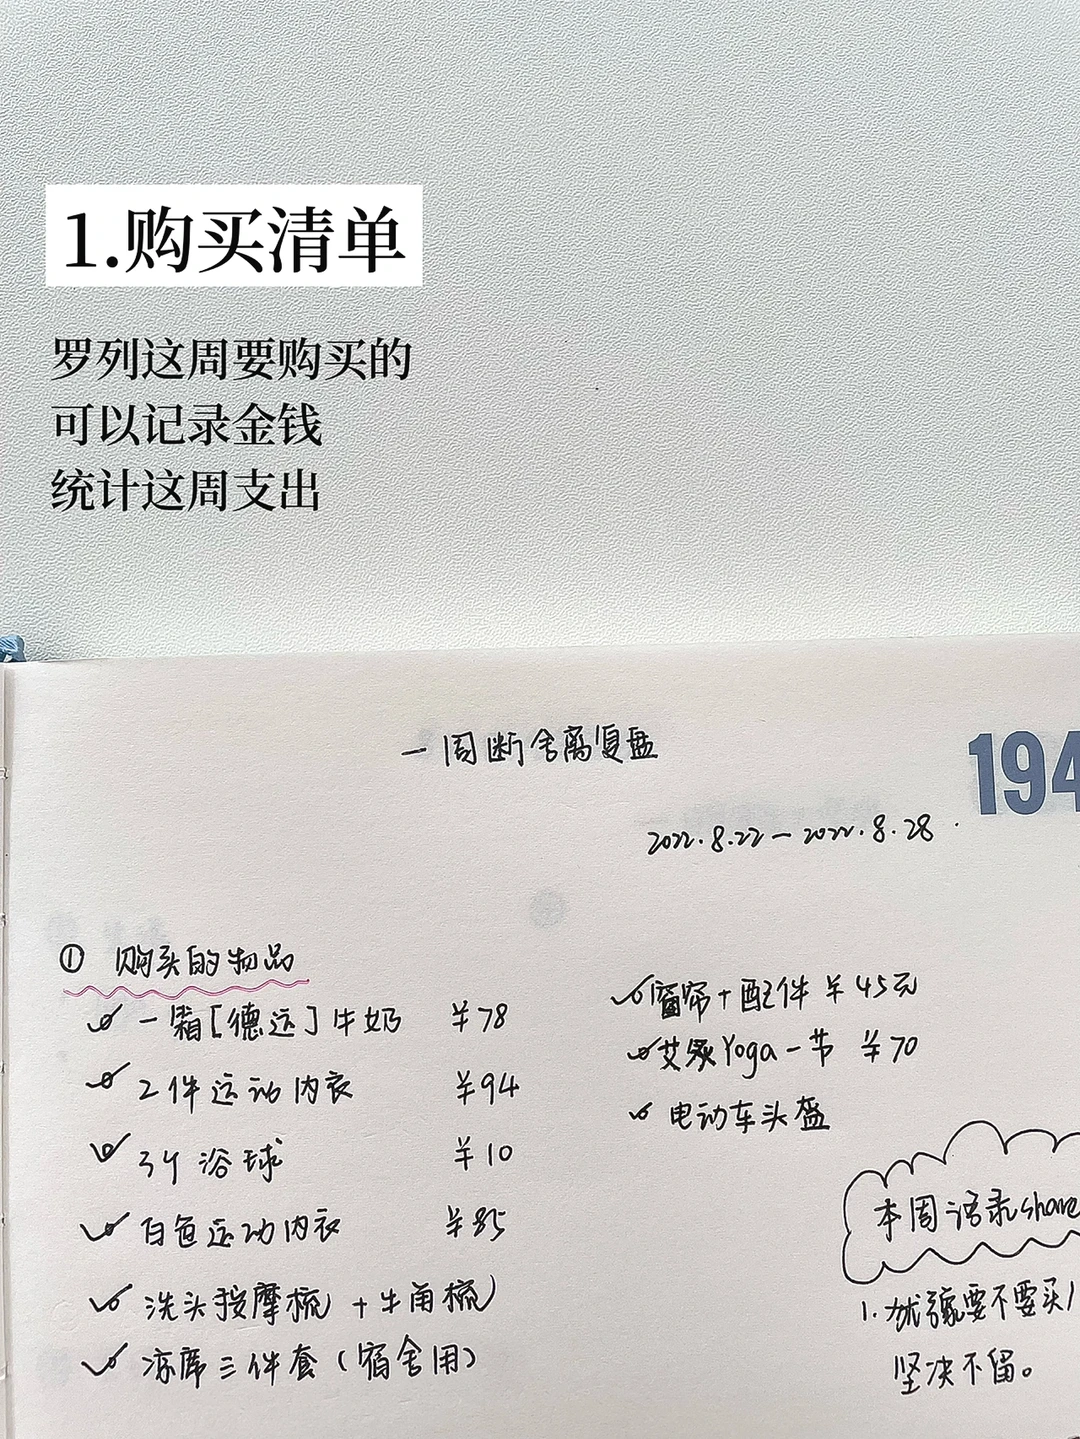 1.购买清单
罗列这周要购买的
可以记录金钱
统计这周支出
一周断舍离复盘
194
2022.8.22—2022.8.28
① 购买的物品
一箱[德运]牛奶 ¥78
2件运动内衣 ¥94
3个浴球 ¥10
白色运动内衣 ¥85
洗头按摩梳 + 牛角梳
凉席三件套(宿舍用)
窗帘+配件 ¥45元
艾灸Yoga一节 ¥70
电动车头盔
本周语录share
1.犹豫要不要买
坚决不留。